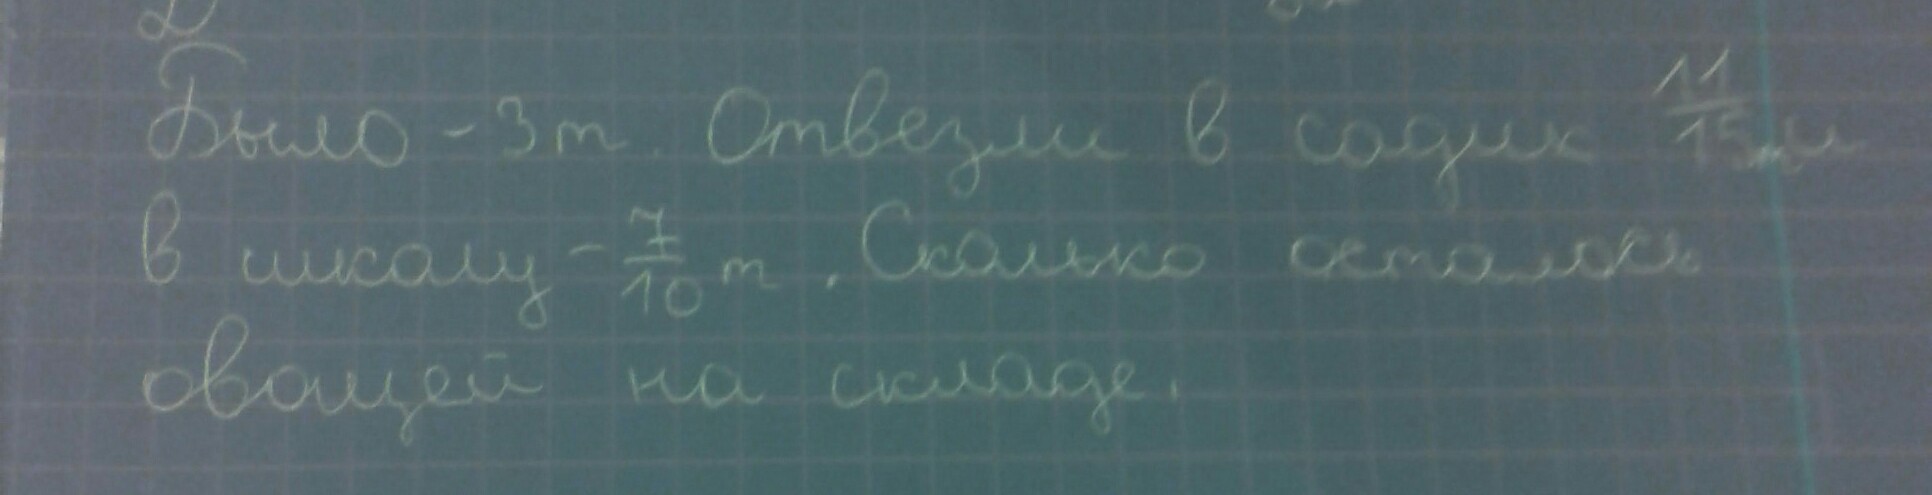 Было - 3 т. Отвезли в садик 11/15 т и
в школу - 7/10 т. Сколько осталось
овощей на складе.